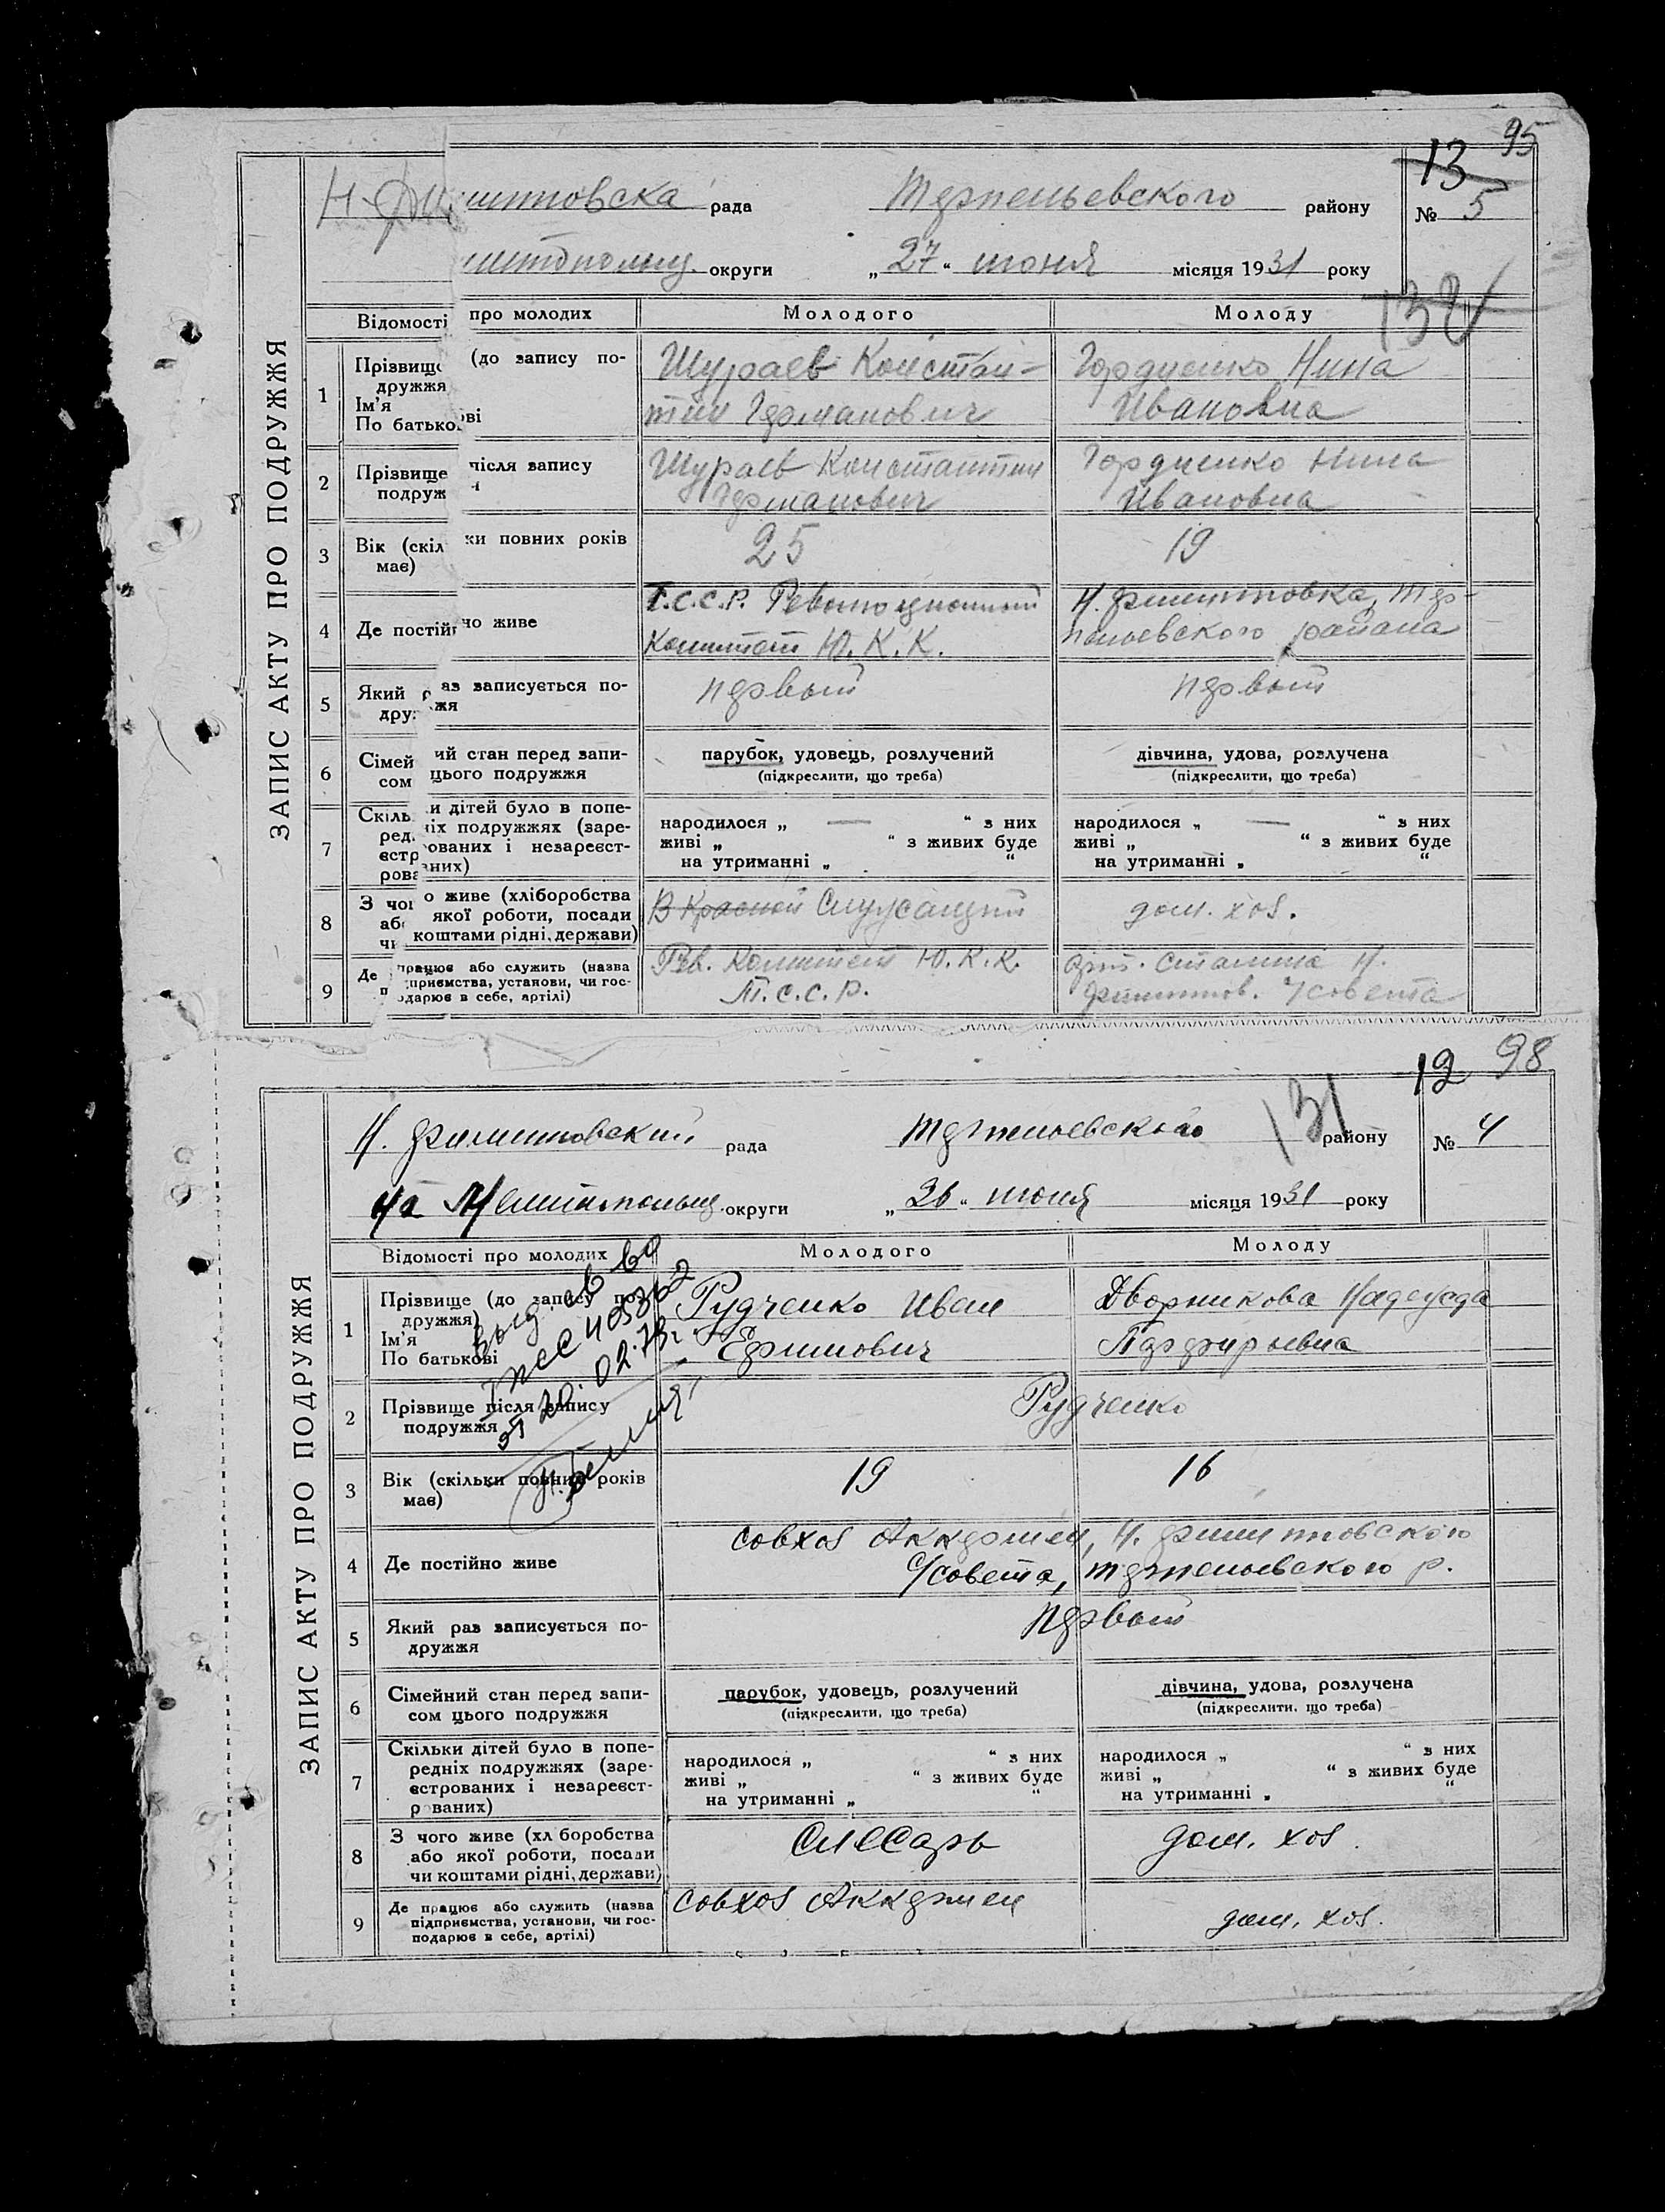 95
13
Н-Филипповска рада Терпеньевского району № 5
округи „27“ июня місяця 1931 року
132
ЗАПИС АКТУ ПРО ПОДРУЖЖЯ
Відомості про молодих Молодого Молоду
1 Прізвище (до запису по-
дружжя
Ім'я
По батькові
Шураев Констан-
тин Германович
Гордиенко Нина
Ивановна
2 Прізвище після запису
подруж
Шураев Константин
Германович
Гордиенко Нина
Ивановна
3 Вік (скільки повних років
має)
25
19
4 Де постійно живе
Т.С.С.Р. Революционный
Комитет Ю.К.К.
Н. Филипповка, Тер-
пеньевского района
5 Який раз записується по-
дружжя
первый
первый
6 Сімейний стан перед запи-
сом цього подружжя
парубок, удовець, розлучений
(підкреслити, що треба)
дівчина, удова, розлучена
(підкреслити, що треба)
7 Скільки дітей було в попе-
редніх подружжях (заре-
єстрованих і незареєст-
рованих)
народилося „ — “ з них
живі „ “ з живих буде
на утриманні „ “
народилося „ — “ з них
живі „ “ з живих буде
на утриманні „ “
8 З чого живе (хліборобства
або якої роботи, посади
чи коштами рідні, держави)
В Красной Служащий
дом. хоз.
9 Де працює або служить (назва
підприємства, установи, чи гос-
подарює в себе, артілі)
Рев. Комитет Ю.К.К.
Т.С.С.Р.
арт. Сталина Н.
Филиппов. с/совета
12 98
131
Н. Филипповский рада Терпеньевского району № 4
на Мелитопольщ. округи „26“ июня місяця 1931 року
ЗАПИС АКТУ ПРО ПОДРУЖЖЯ
Відомості про молодих Молодого Молоду
1 Прізвище (до запису по-
дружжя)
Ім'я
По батькові
Рудченко Иван
Ефимович
Дворникова Надежда
Парфирьевна
выд. св во
20.02.79г.
2 Прізвище після запису
подружжя
Рудченко
3 Вік (скільки повних років
має)
19
16
4 Де постійно живе
совхоз Аккермен, Н. Филипповского
с/совета, Терпеньевского р.
5 Який раз записується по-
дружжя
первый
6 Сімейний стан перед запи-
сом цього подружжя
парубок, удовець, розлучений
(підкреслити, що треба)
дівчина, удова, розлучена
(підкреслити, що треба)
7 Скільки дітей було в попе-
редніх подружжях (заре-
єстрованих і незареєст-
рованих)
народилося „ “ з них
живі „ “ з живих буде
на утриманні „ “
народилося „ “ з них
живі „ “ з живих буде
на утриманні „ “
8 З чого живе (хл боробства
або якої роботи, посади
чи коштами рідні, держави)
Слесарь
дом. хоз.
9 Де працює або служить (назва
підприємства, установи, чи гос-
подарює в себе, артілі)
совхоз Аккермен
дом. хоз.